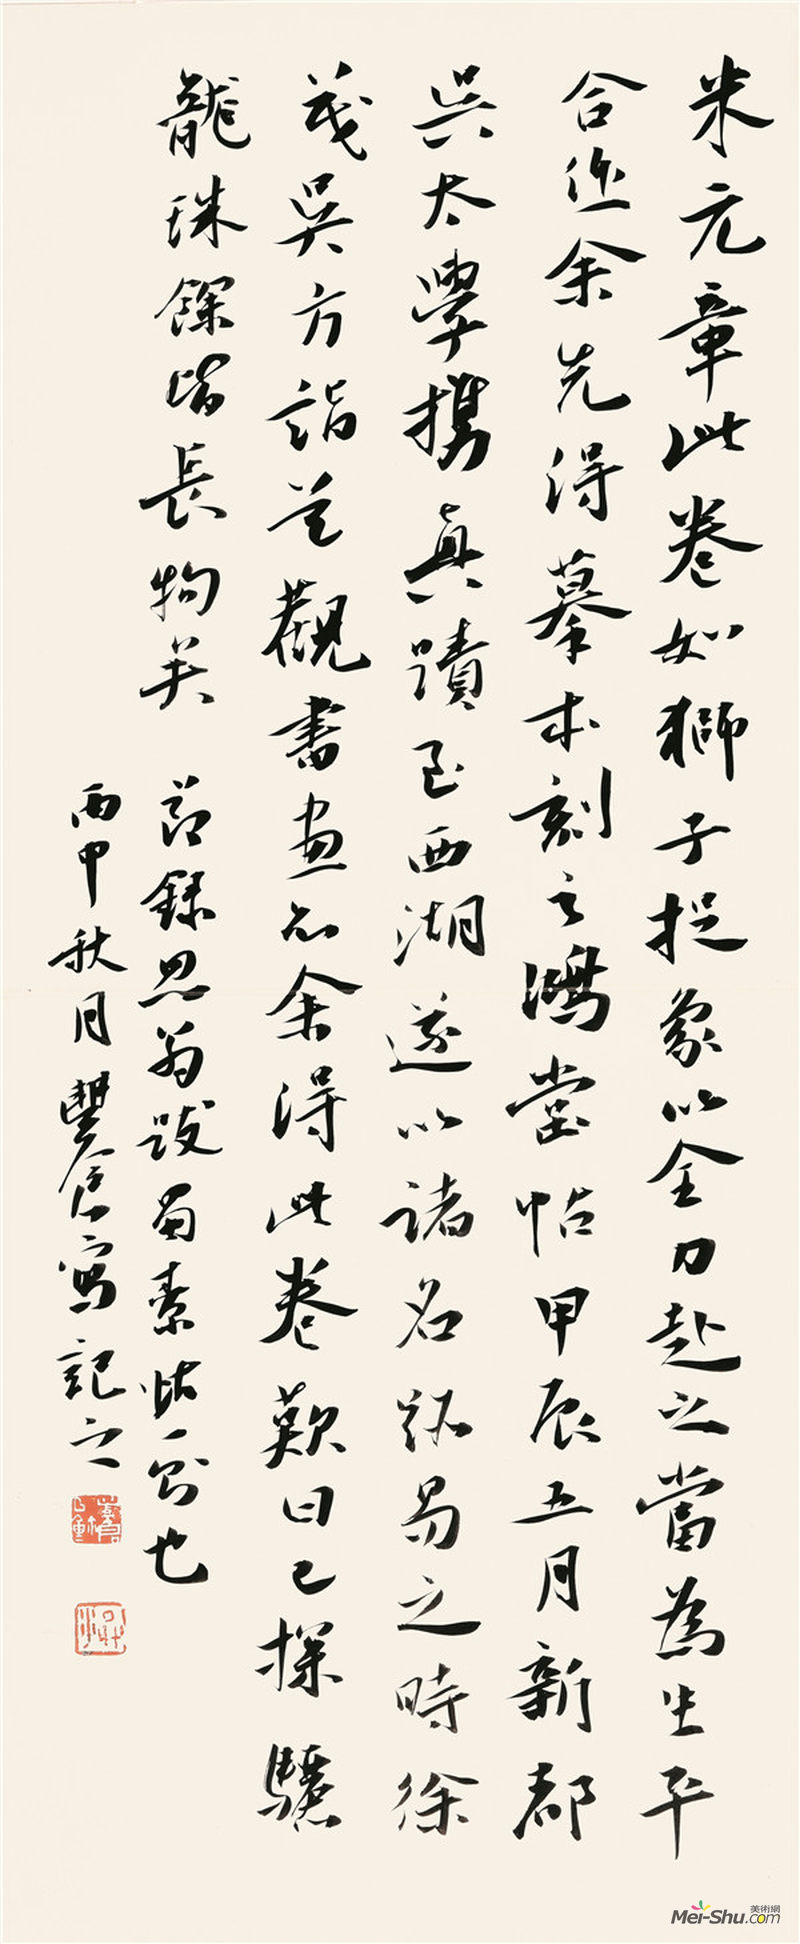 米元章此卷如獅子捉象以全力赴之當為生平
合作余先得摹本刻之鴻堂帖甲辰五月新都
吳太學攜真蹟至西湖遂以諸名跡易之時徐
茂吳方詣吾觀書畫知余得此卷歎曰已探驪
龍珠餘皆長物矣 節錄思翁跋蜀素帖一則也
丙申秋月 寫記之
美術網
Mei-Shu.com